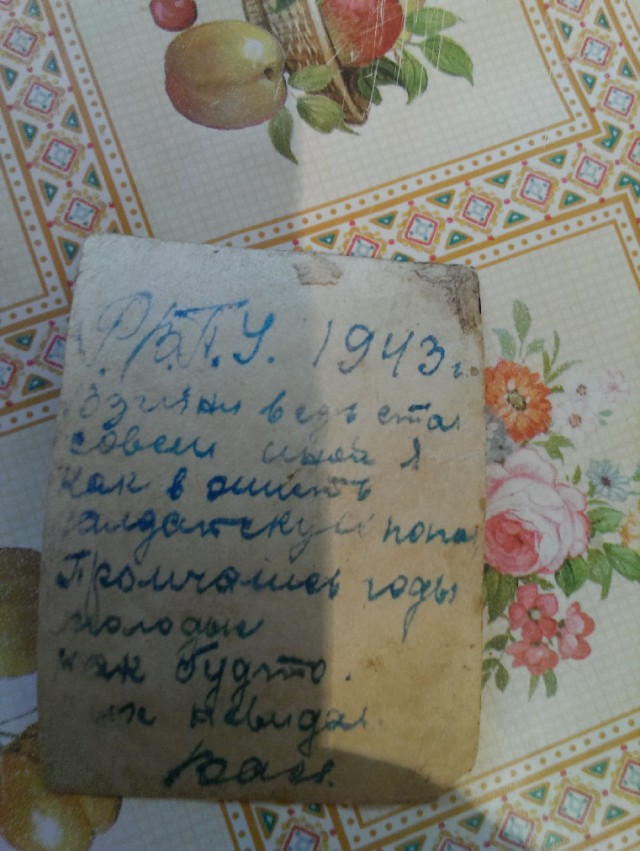 Р.В.П.У. 1943 г.
Взгляни ведь стал
совсем иной я
Как в
салдатскую попал
Промчались годы
молодые
как будто.
их невидал.
Вася.